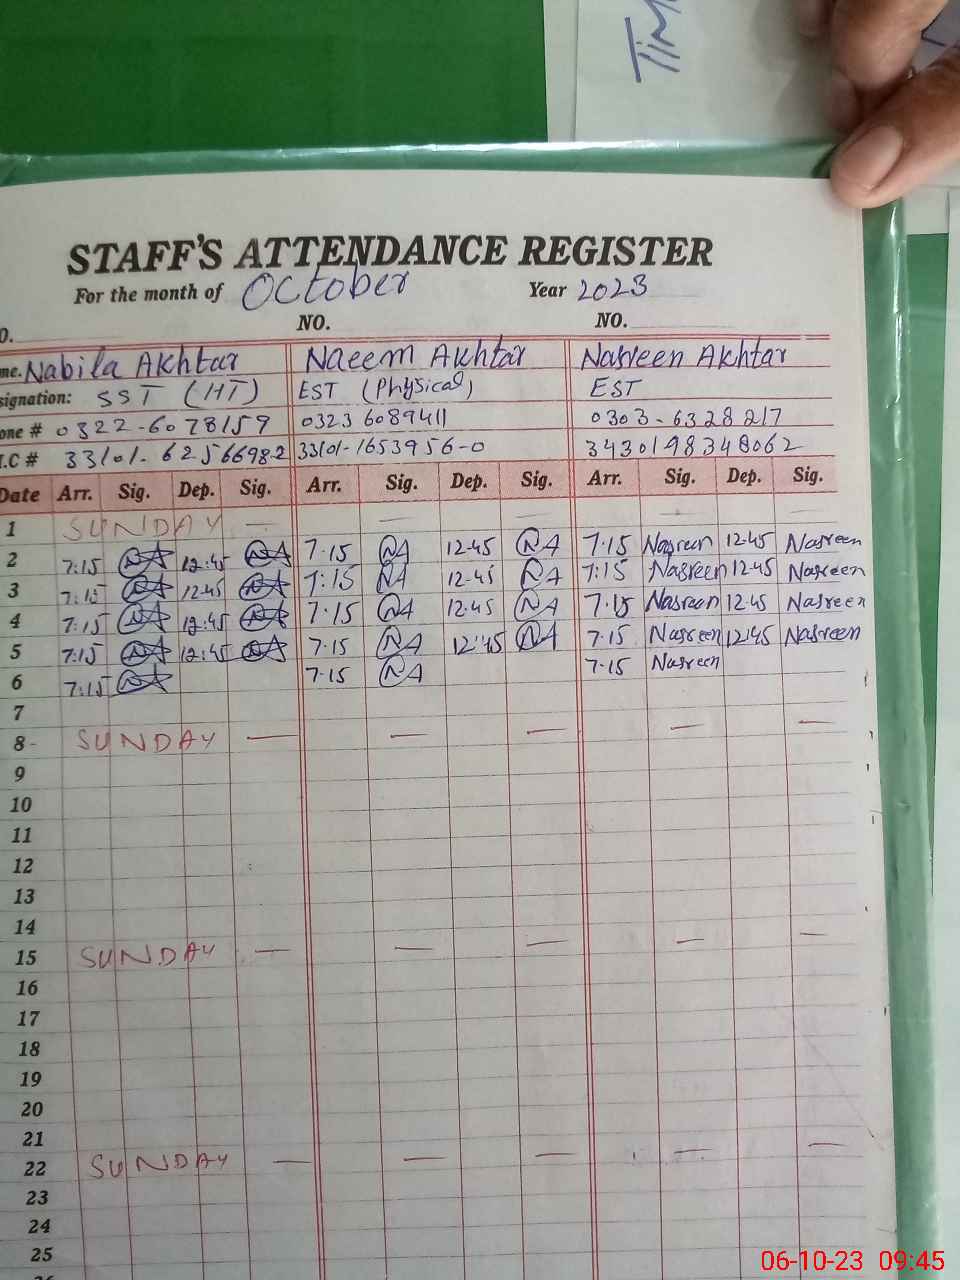 TIM
STAFF'S ATTENDANCE REGISTER
For the month of October Year 2023
O. NO. NO.
me. Nabila Akhtar Naeem Akhtar Nasreen Akhtar
signation: SST (HT) EST (Physical) EST
one # 0322-6078159 0323 6089411 0303-6328217
I.C # 33101-6256698-2 33101-1653956-0 3430198348062
Date Arr. Sig. Dep. Sig. Arr. Sig. Dep. Sig. Arr. Sig. Dep. Sig.
1 SUNDAY — — — — —
2 7:15 NA 12:45 NA 7.15 NA 12.45 NA 7:15 Nasreen 12.45 Nasreen
3 7:15 NA 12.45 NA 7:15 NA 12.45 NA 7:15 Nasreen 12.45 Nasreen
4 7:15 NA 12:45 NA 7.15 NA 12.45 NA 7.15 Nasreen 12.45 Nasreen
5 7:15 NA 12:45 NA 7.15 NA 12:45 NA 7.15 Nasreen 12:45 Nasreen
6 7:15 NA 7.15 NA 7.15 Nasreen
7
8 - SUNDAY — — — — —
9
10
11
12
13
14
15 SUNDAY — — — — —
16
17
18
19
20
21
22 SUNDAY — — — — —
23
24
25
06-10-23 09:45